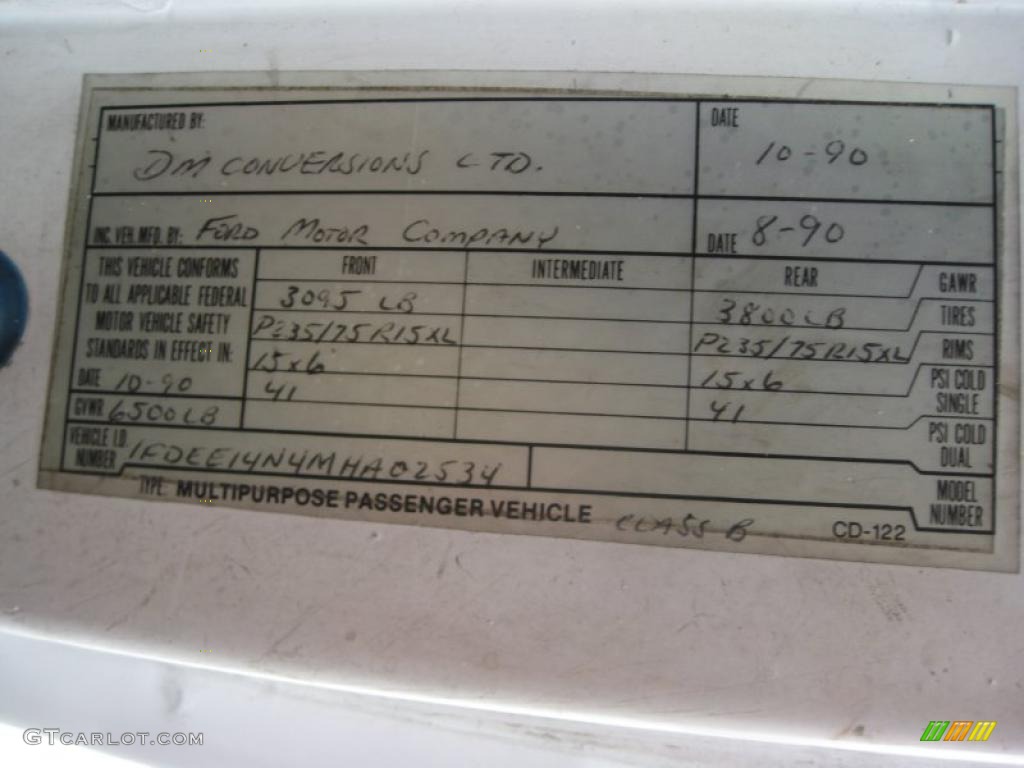 MANUFACTURED BY: DATE
DM CONVERSIONS LTD. 10-90
INC. VEH. MFD. BY: FORD MOTOR COMPANY DATE 8-90
THIS VEHICLE CONFORMS
TO ALL APPLICABLE FEDERAL
MOTOR VEHICLE SAFETY
STANDARDS IN EFFECT IN:
DATE 10-90
GVWR 6500LB
FRONT INTERMEDIATE REAR GAWR
3095 LB 3800LB TIRES
P235/75R15XL P235/75R15XL RIMS
15x6 15x6 PSI COLD SINGLE
41 41 PSI COLD DUAL
VEHICLE I.D.
NUMBER 1FDEE14N4MHA02534
MODEL
NUMBER
TYPE: MULTIPURPOSE PASSENGER VEHICLE CLASS B CD-122
GTCARLOT.COM